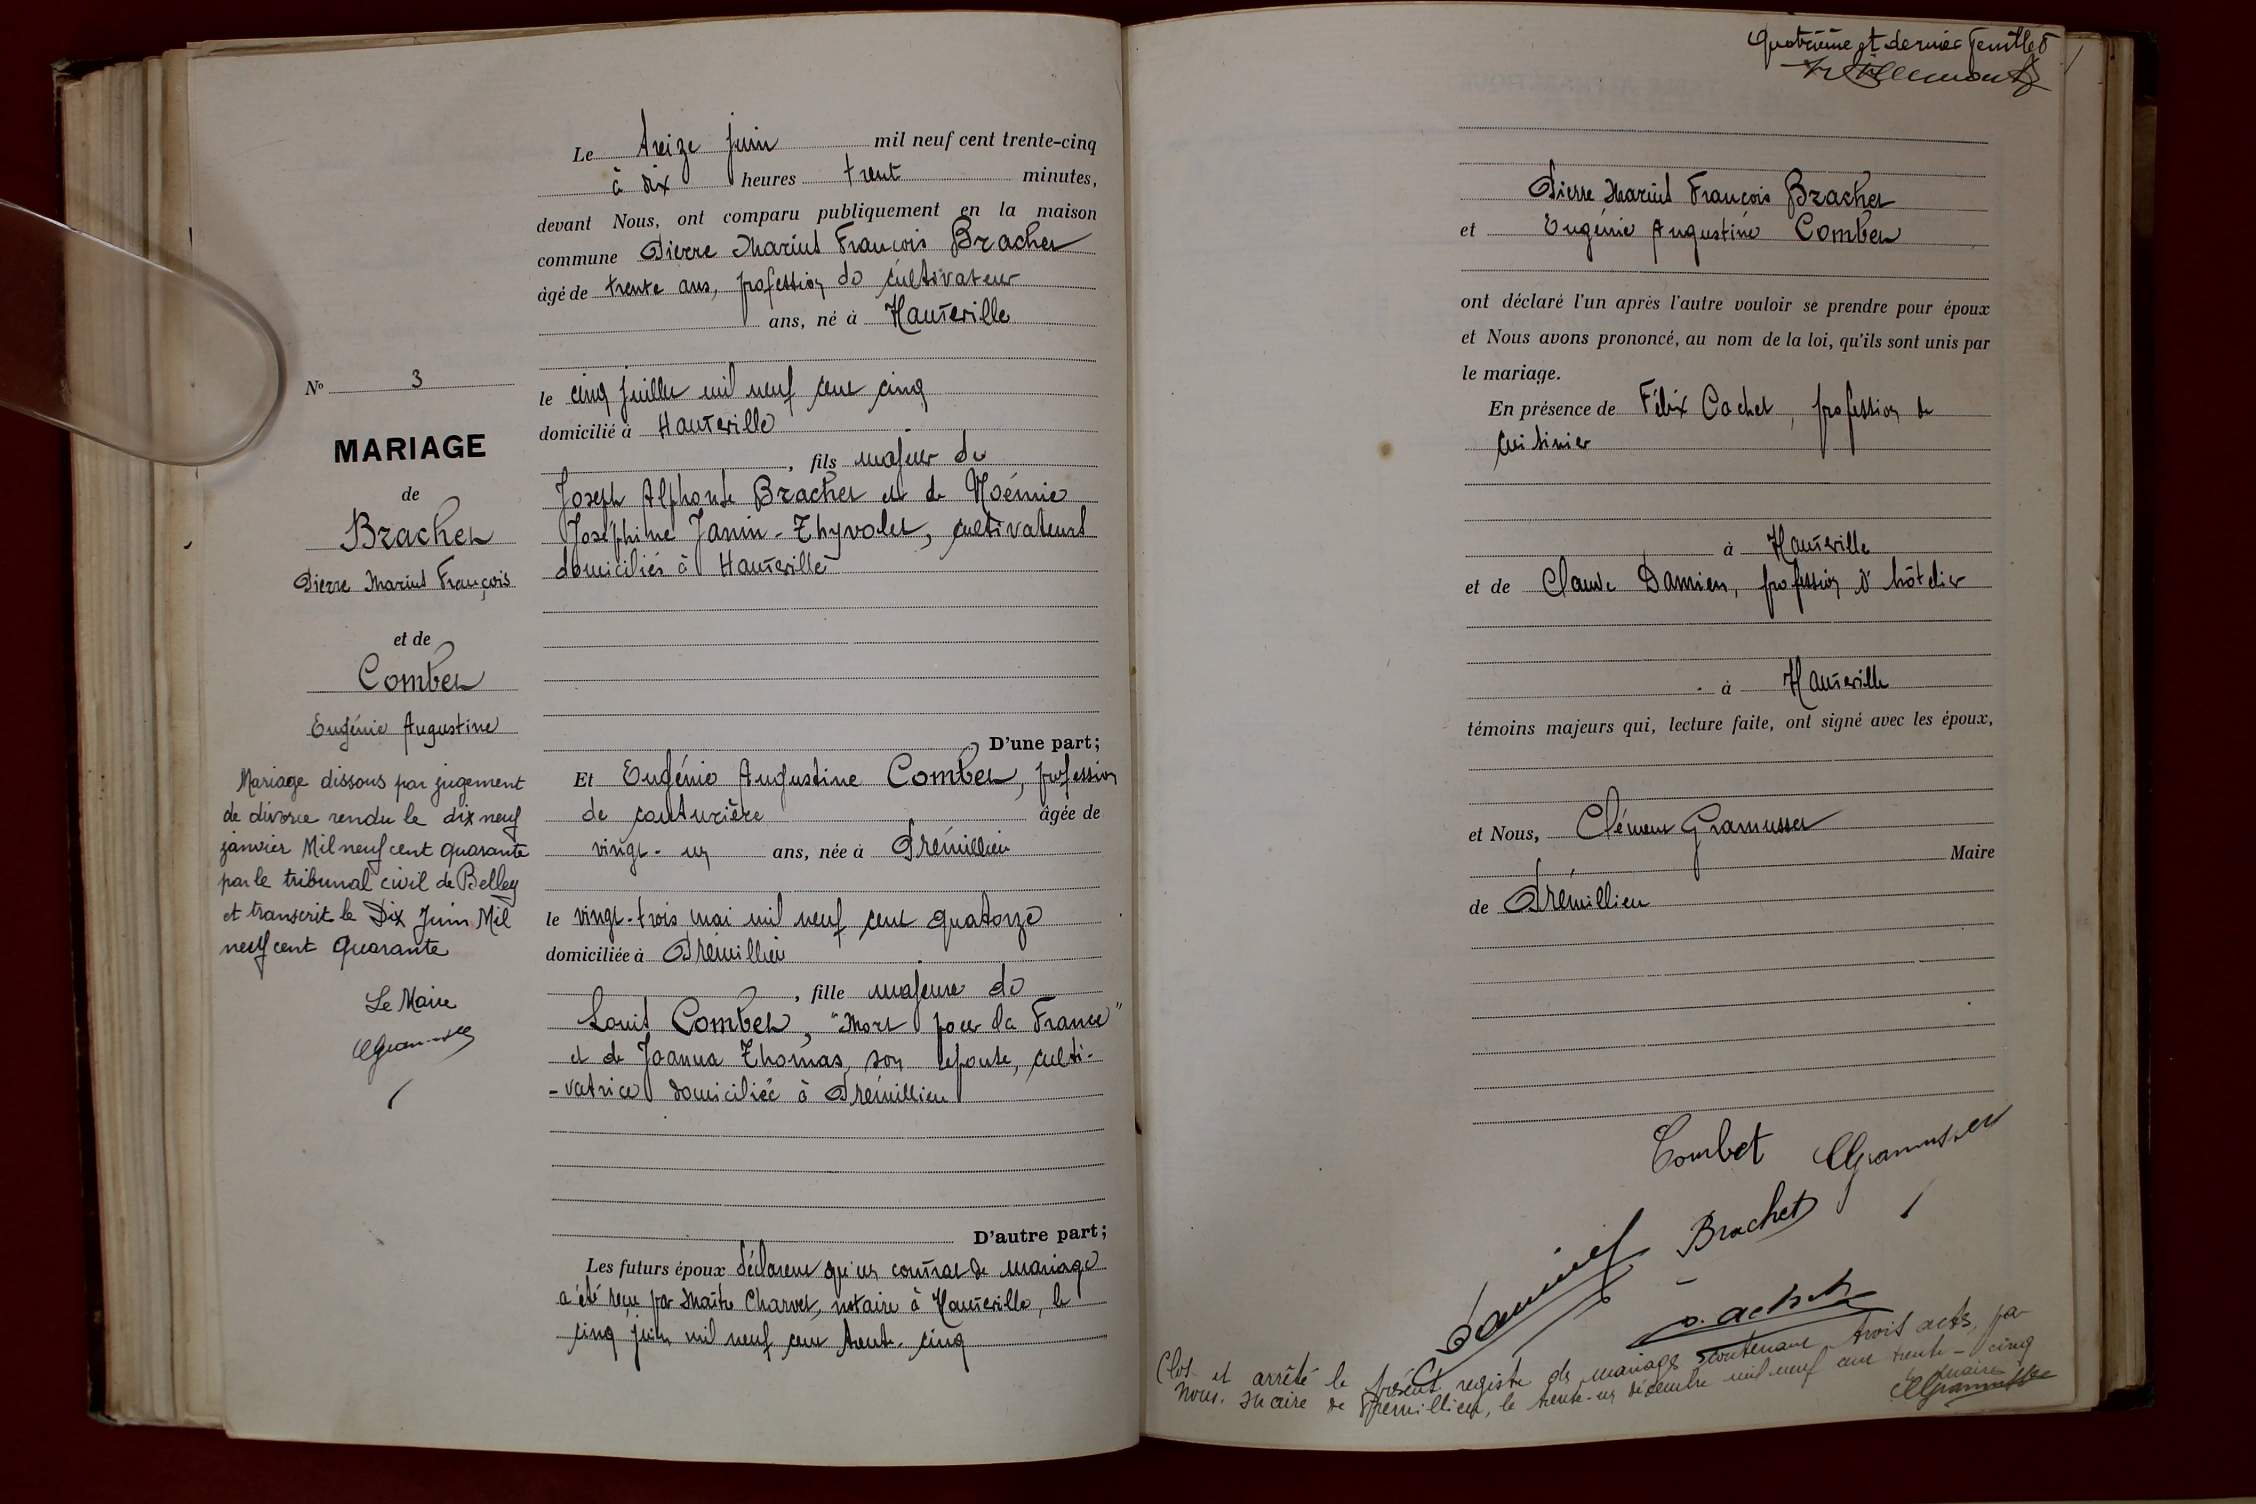 Le treize juin mil neuf cent trente-cinq
à dix heures trent minutes,
devant Nous, ont comparu publiquement en la maison
commune Pierre Marius François Brachet
âgé de trente ans, profession de cultivateur
ans, né à Hauteville
le cinq juillet mil neuf cent cinq
domicilié à Hauteville
, fils majeur de
Joseph Alphonse Brachet et de Noémie
Joséphine Janin-Thyvolet, cultivateurs
domiciliés à Hauteville
D'une part;
Et Eugénie Augustine Combet, profession
de couturière âgée de
vingt-un ans, née à Prémillieu
le vingt-trois mai mil neuf cent quatorze
domiciliée à Prémillieu
, fille majeure de
Louis Combet, "Mort pour la France"
et de Joanna Thomas, son épouse, culti-
-vatrice domiciliée à Prémillieu
D'autre part;
Les futurs époux déclarent qu'un contrat de mariage
a été reçu par Maître Charvet, notaire à Hauteville, le
cinq juin mil neuf cent trente-cinq
N° 3
MARIAGE
de
Brachet
Pierre Marius François
et de
Combet
Eugénie Augustine
Mariage dissous par jugement
de divorce rendu le dix neuf
janvier Mil neuf cent quarante
par le tribunal civil de Belley
et transcrit le Dix Juin Mil
neuf cent quarante
Le Maire
Quatrième et dernier feuillet
Pierre Marius François Brachet
et Eugénie Augustine Combet
ont déclaré l'un après l'autre vouloir se prendre pour époux
et Nous avons prononcé, au nom de la loi, qu'ils sont unis par
le mariage.
En présence de Félix Cachet, profession de
cuisinier
à Hauteville
et de Claude Damien, profession d'hôtelier
à Hauteville
témoins majeurs qui, lecture faite, ont signé avec les époux,
et Nous, Clément Gramusset
Maire
de Prémillieu
Combet CGramusset
Brachet
Clos et arrêté le présent registre de mariages contenant trois actes, par
Nous, Maire de Prémillieu, le trente-un décembre mil neuf cent trente-cinq
Le Maire
CGramusset